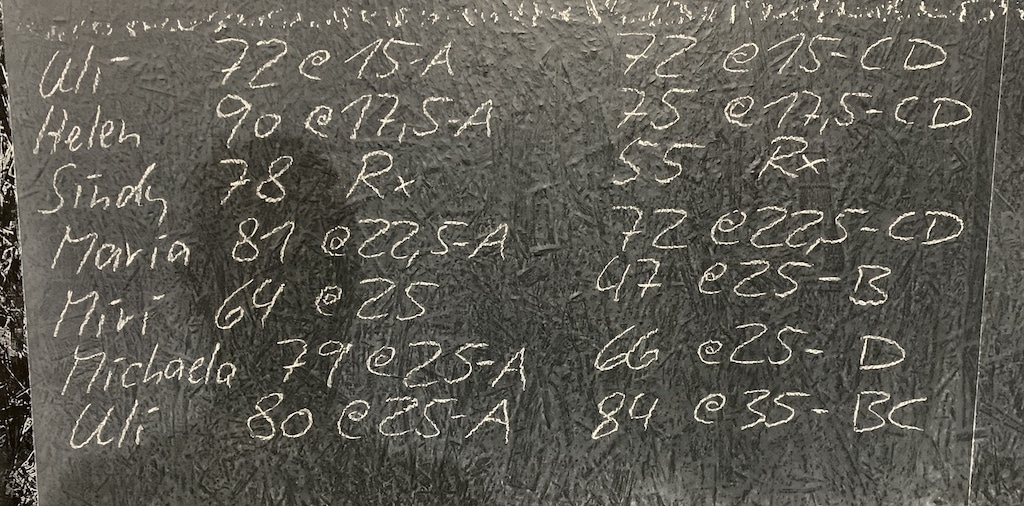 Uli 72 @ 15-A 72 @ 15-CD
Helen 90 @ 17,5-A 75 @ 17,5-CD
Sindy 78 Rx 55 Rx
Maria 81 @ 22,5-A 72 @ 22,5-CD
Miri 64 @ 25 47 @ 25-B
Michaela 79 @ 25-A 66 @ 25- D
Uli 80 @ 25-A 84 @ 35- BC